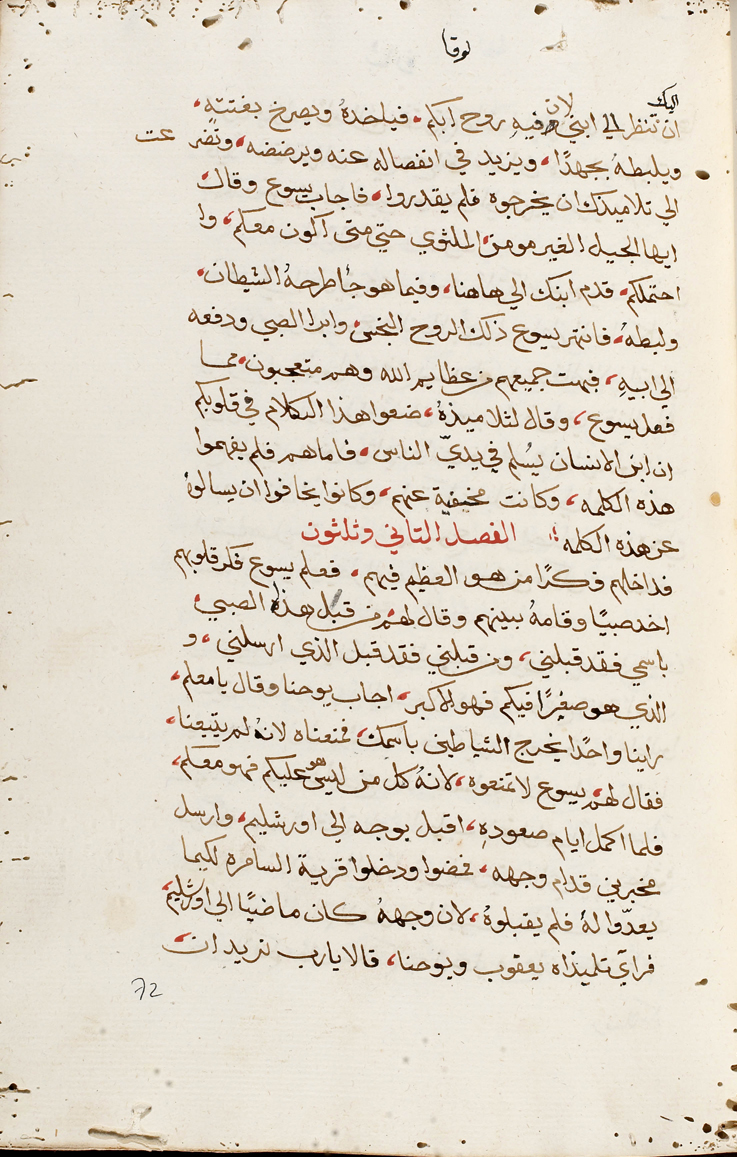 لوقا
اليك
ان تنظر الي ابني لان فيه روح ابكم، فياخدهُ ويصرخ بغتتهٍ،
ويلبطهُ بجهدًا، ويزيد في انفصاله عنه ويرضضه، وتضرعت
الي تلاميذك ان يخرجوه فلم يقدروا، فاجاب يسوع وقال
ايها الجيل الغير مومن الملثوي حتي متى اكون معكم، وا
احتملكم، قدم ابنك الي هاهنا، وفيما هو جاً اطرحهُ الشيطان،
ولبطهُ، فانتهر يسوع ذلك الروح النجس، وابرا الصبي ودفعه
الي ابيهِ، فبهت جميعهم من عظايم الله وهم متعجبون، مما
فعل يسوع، وقال لثلاميذهُ، ضعوا هذا الكلام في قلوبكم
ان ابن الانسان يُسلم في يديّ الناس، فاماهم فلم يفهموا
هذه الكلمه، وكانت مخيفية عنهم، وكانوا يخافوا ان يسالوهُ
عن هذه الكلمه؛ الفصل التاني وثلثون
فداخلهم فكرًا من هو العظيم فيهم، فعلم يسوع فكر قلوبهم
اخد صبيًا وقامهُ بينهم وقال لهم من قبل هذا الصبي
باسمي فقد قبلني، ومن قبلني فقد قبل الذي ارسلني، و
الذي هو صغيرًا فيكم فهو الاكبر، اجاب يوحنا وقال يا معلم،
راينا واحدًا يخرج الشياطين باسمك، فمنعناه لانهُ لم يتبعنا،
فقال لهم يسوع لا تمنعوه، لانهُ كل من ليس هو عليكم فهو معكم،
فلما اكمل ايام صعودهِ، اقبل بوجه الي اورشليم، وارسل
مخبرين قدام وجهه، فمضوا ودخلوا قرية السامره لكيما
يعدّوا لهُ فلم يقبلوهُ، لان وجههُ كان ماضيًا الي اورشليم،
فرآي تلميذاه يعقوب ويوحنا، قالا يارب تريد ان
72